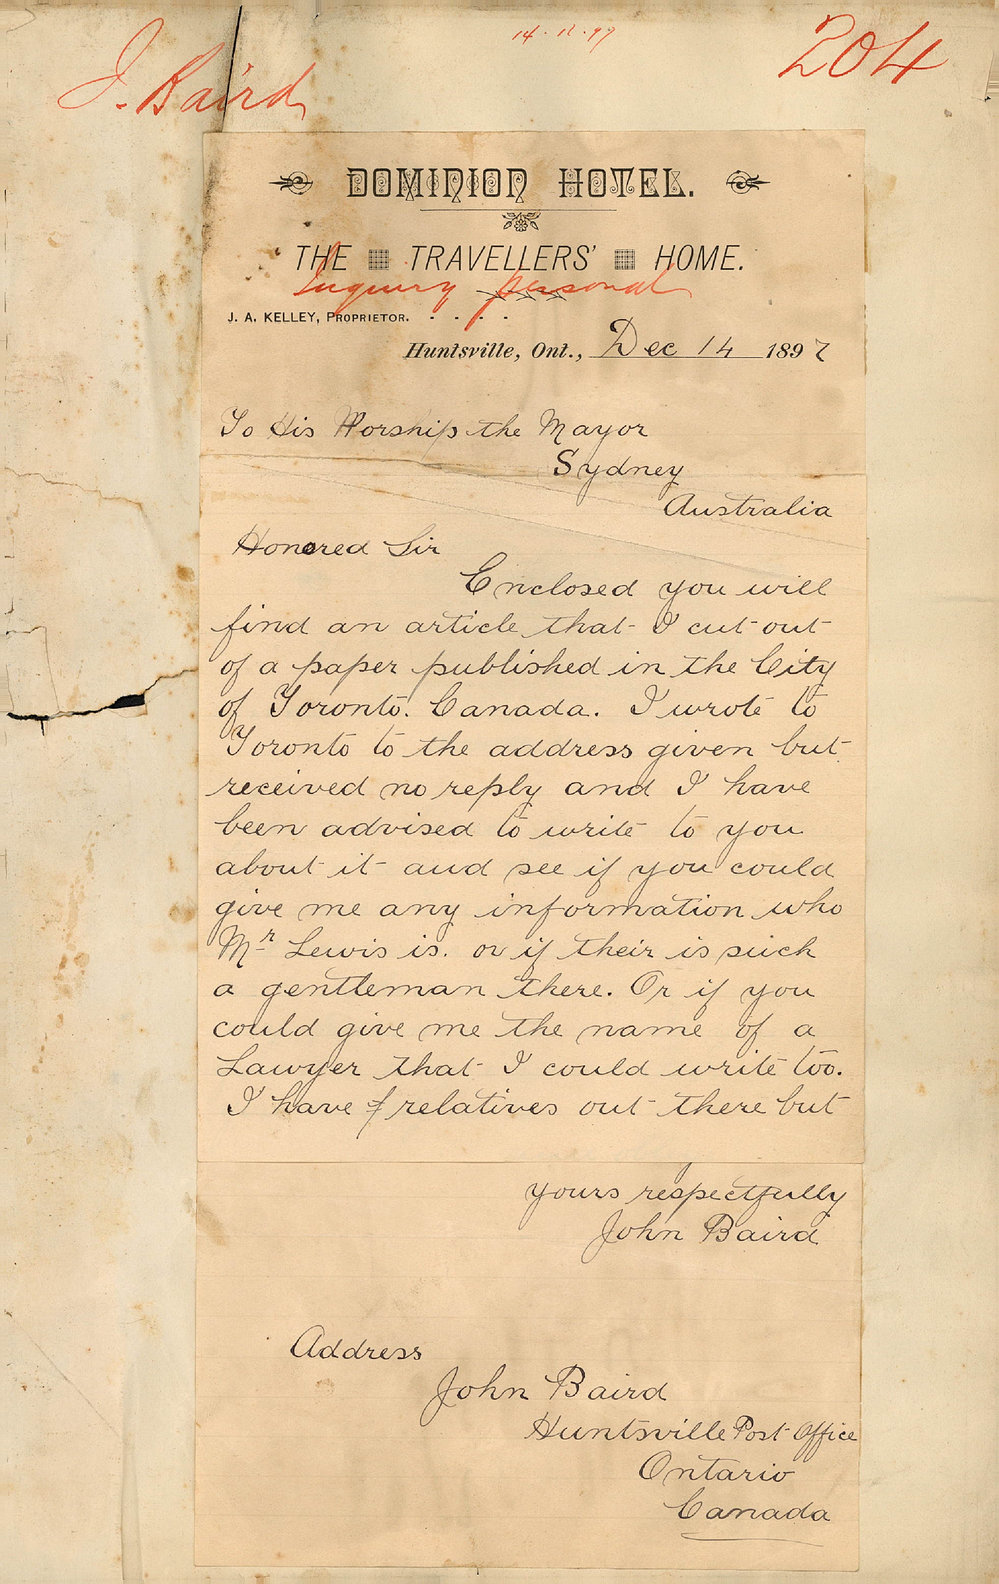 J. Baird
14.12.97
204
DOMINION HOTEL.
THE TRAVELLERS' HOME.
Inquiry personal
J. A. KELLEY, PROPRIETOR. - - - -
Huntsville, Ont., Dec 14 1897
To His Worship the Mayor
Sydney
Australia
Honored Sir
Enclosed you will
find an article that I cut out
of a paper published in the City
of Toronto. Canada. I wrote to
Toronto to the address given but
received no reply and I have
been advised to write to you
about it and see if you could
give me any information who
Mr Lewis is. or if their is such
a gentleman there. Or if you
could give me the name of a
Lawyer that I could write too.
I have relatives out there but
yours respectfully
John Baird
Address
John Baird
Huntsville Post Office
Ontario
Canada